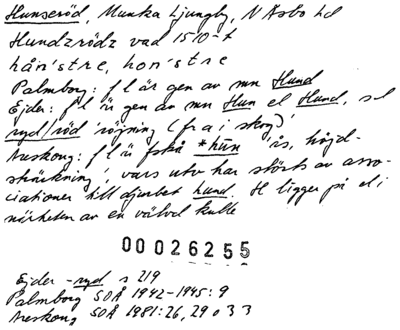 Hunseröd, Munka Ljungby, N Åsbo hd
Hundzrödz vad 1510-t
hån'stre, hon'stre
Palmborg: fl är gen av mn Hund
Ejder: fl är gen av mn Hun el Hund, sl
ryd/röd 'röjning (fra i skog)'
Areskoug: fl är fskå *hūn 'ås, höjd-
sträckning', vars utv har störts av asso-
ciationer till djuret hund. H ligger på el i
närheten av en välvd kulle
00026255
Ejder -ryd s 219
Palmborg SOÅ 1942-1945:9
Areskoug SOÅ 1981:26, 29 o 33